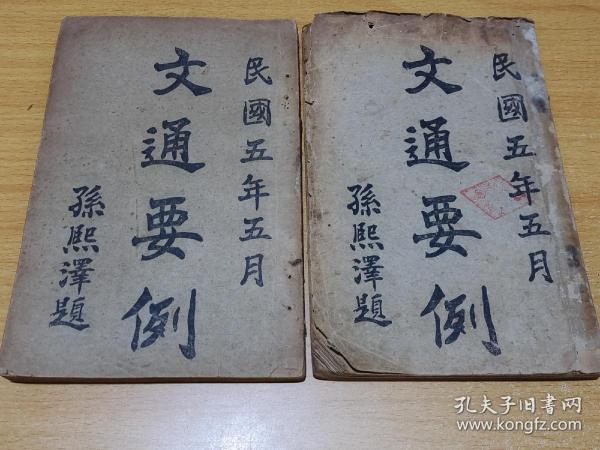 民國五年五月
文通要例
孫熙澤題
民國五年五月
文通要例
孫熙澤題
孔夫子旧书网
www.kongfz.com